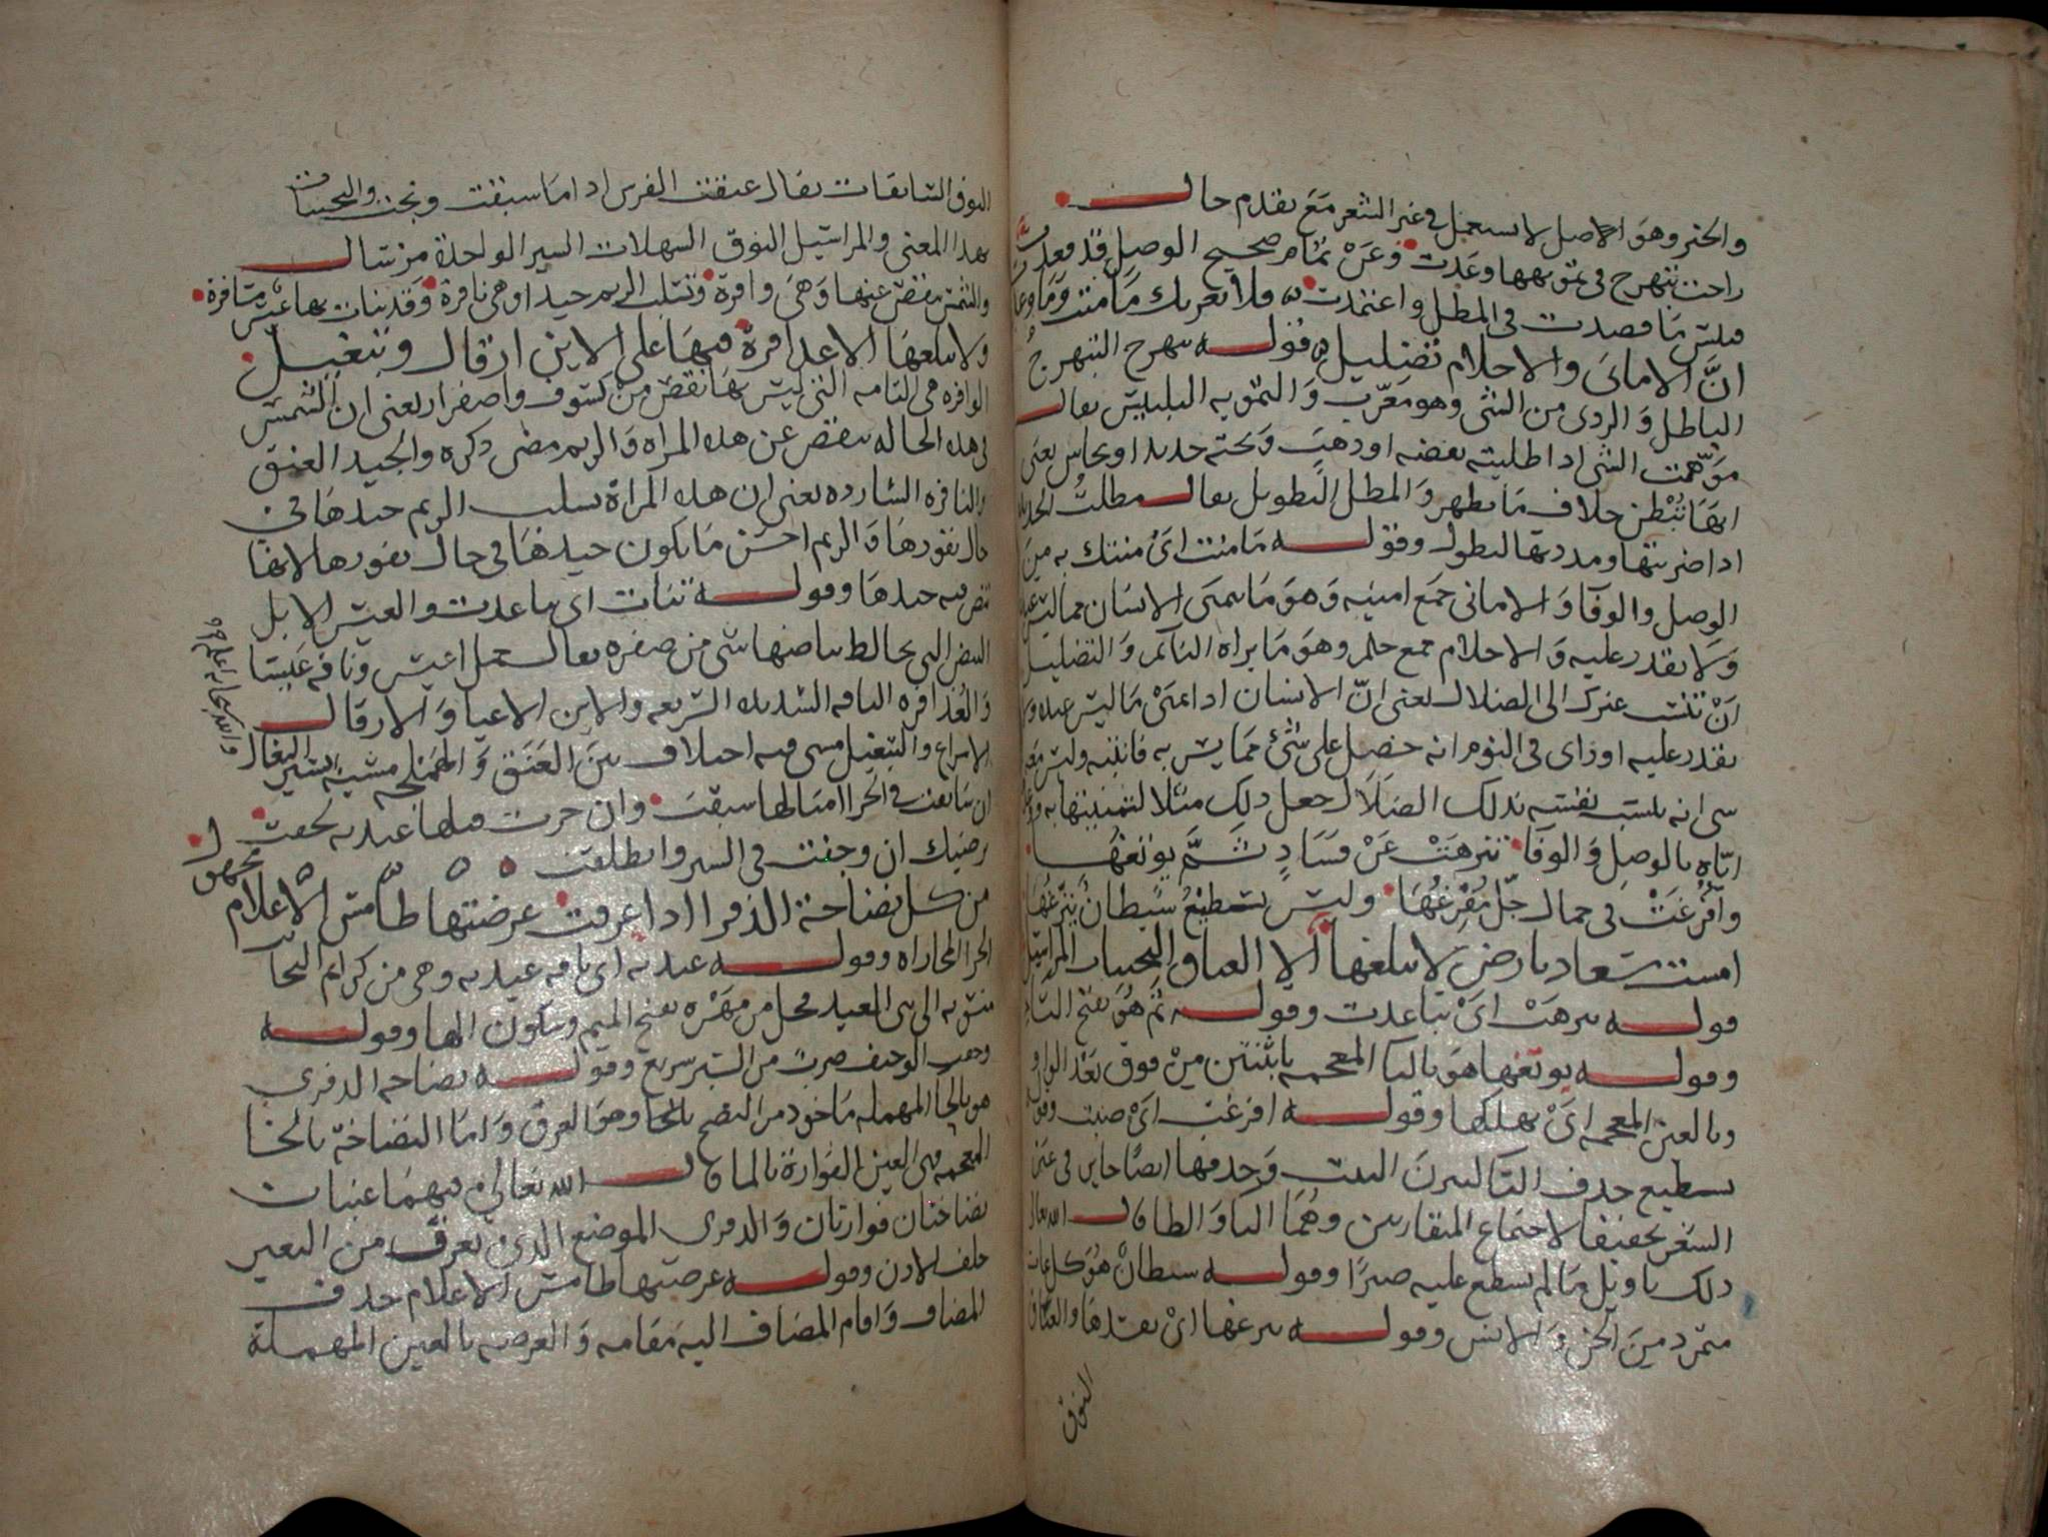 والخبر وهو الاصل لا يستعمل في غير الشعر مع تقدم حال
راحت تبهرج في تمويهها وعدت وعن تمام صحيح الوصل قد قعدت
فليس ما قصدت في المطل واعتمدت فلا يغرنك ما منت وما وعدت
ان الاماني والاحلام تضليل قوله تبهرج التبهرج
الباطل والردى من الشي وهو معرب والتمويه التلبيس يقال
موهت الشي اذا طليته بفضه او ذهب وتحته حديد او نحاس يعني
انها تبطن خلاف ما تظهر والمطل التطويل يقال مطلت الحديد
اذا ضربتها ومددتها لتطول وقوله ما منت اي منتك به من
الوصل والوفا والاماني جمع امنيه وهو ما يتمنى الانسان مما ليس عنده
ولا يقدر عليه والاحلام جمع حلم وهو ما يراه النائم والتضليل
ان تنسب غيرك الى الضلال يعني ان الانسان اذا تمنى ما ليس عنده ولا
يقدر عليه او راى في النوم انه حصل على شئ مما يسر به فانتبه وليس معه
شي انه ينسب نفسه بذلك الضلال جعل ذلك مثلا لتمنيتها به
اياه بالوصل والوفا تنزهت عن فساد ثم يوتغها
وافرغت في جمال جل مفرغها وليس يسطيع شيطان ينزغها
امست سعاد بارض لا يبلغها الا العتاق النجيبات المراسيل
قوله تنزهت اي تباعدت وقوله ثم هو بفتح الثاء
وقوله يوتغها هو بالتا المعجمه باثنتين من فوق بعد الواو
وبالغين المعجمه اي يهلكها وقوله افرغت اي صبت وقوله
يسطيع حذف التا ليزن البيت وحذفها ايضا جايز في غير
الشعر تخفيفا لاجتماع المتقاربين وهما التا والطا قال الله تعالى
ذلك تاويل ما لم تسطع عليه صبرا وقوله شيطان هو كل عات
متمرد من الجن والانس وقوله ينزغها اي يفسدها والعتاق
النوق
النوق السابقات يقال عتقت الفرس اذا ما سبقت ونجت والنجيبات
بهذا المعنى والمراسيل النوق السهلات السير الواحدة مرسال
والشمس تنقص عنها وهي وافرة وتسلب الريم جيدا وهي نافرة وقد بنات بها عيس مسافرة
ولا يبلغها الا عذافرة فيها على الاين ارقال وتبغيل
الوافره هي التامه التي ليس بها نقص من كسوف واصفرار يعني ان الشمس
في هذه الحاله تنقص عن هذه المراه والريم مضى ذكره والجيد العنق
والنافره الشارده يعني ان هذه المراة تسلب الريم جيدها في
حال نفورها والريم احسن ما يكون جيدها في حال نفورها لانها
تنص فيه جيدها وقوله تنات اي تباعدت والعيس الابل
البيض التي يخالط بياضها شي من صفره يقال جمل اعيس وناقه عيسا
والعذافره الناقه الشديده السريعه والاين الاعيا والارقال
الاسراع والتبغيل مشي فيه اختلاف بين العنق والهملجه مشبه بسير البغال
والله سبحانه اعلم
ان سابقت في الجرا امثالها سبقت وان جرت قبلها عيديه لحقت
ترضيك ان وجفت في السير وانطلقت
من كل نضاحة الذفرا اذا عرقت عرضتها طامس الاعلام مجهول
الجرا المجاراه وقوله عيديه اي ناقه عيديه وهي من كرايم النجائب
منسوبه الى بني العيد فحل من مهره بفتح الميم وسكون الها وقوله
وجفت الوجيف ضرب من السير سريع وقوله نضاحه الذفرى
هو بالحا المهمله ماخوذ من النضح بالحا وهو العرق واما النضاخة بالخا
المعجمه فهي العين الفوارة بالما قال الله تعالى فيهما عينان
نضاختان فوارتان والذفرى الموضع الذي يعرق من البعير
خلف الاذن وقوله عرضتها طامس الاعلام حذف
المضاف واقام المضاف اليه مقامه والعرضه بالعين المهملة